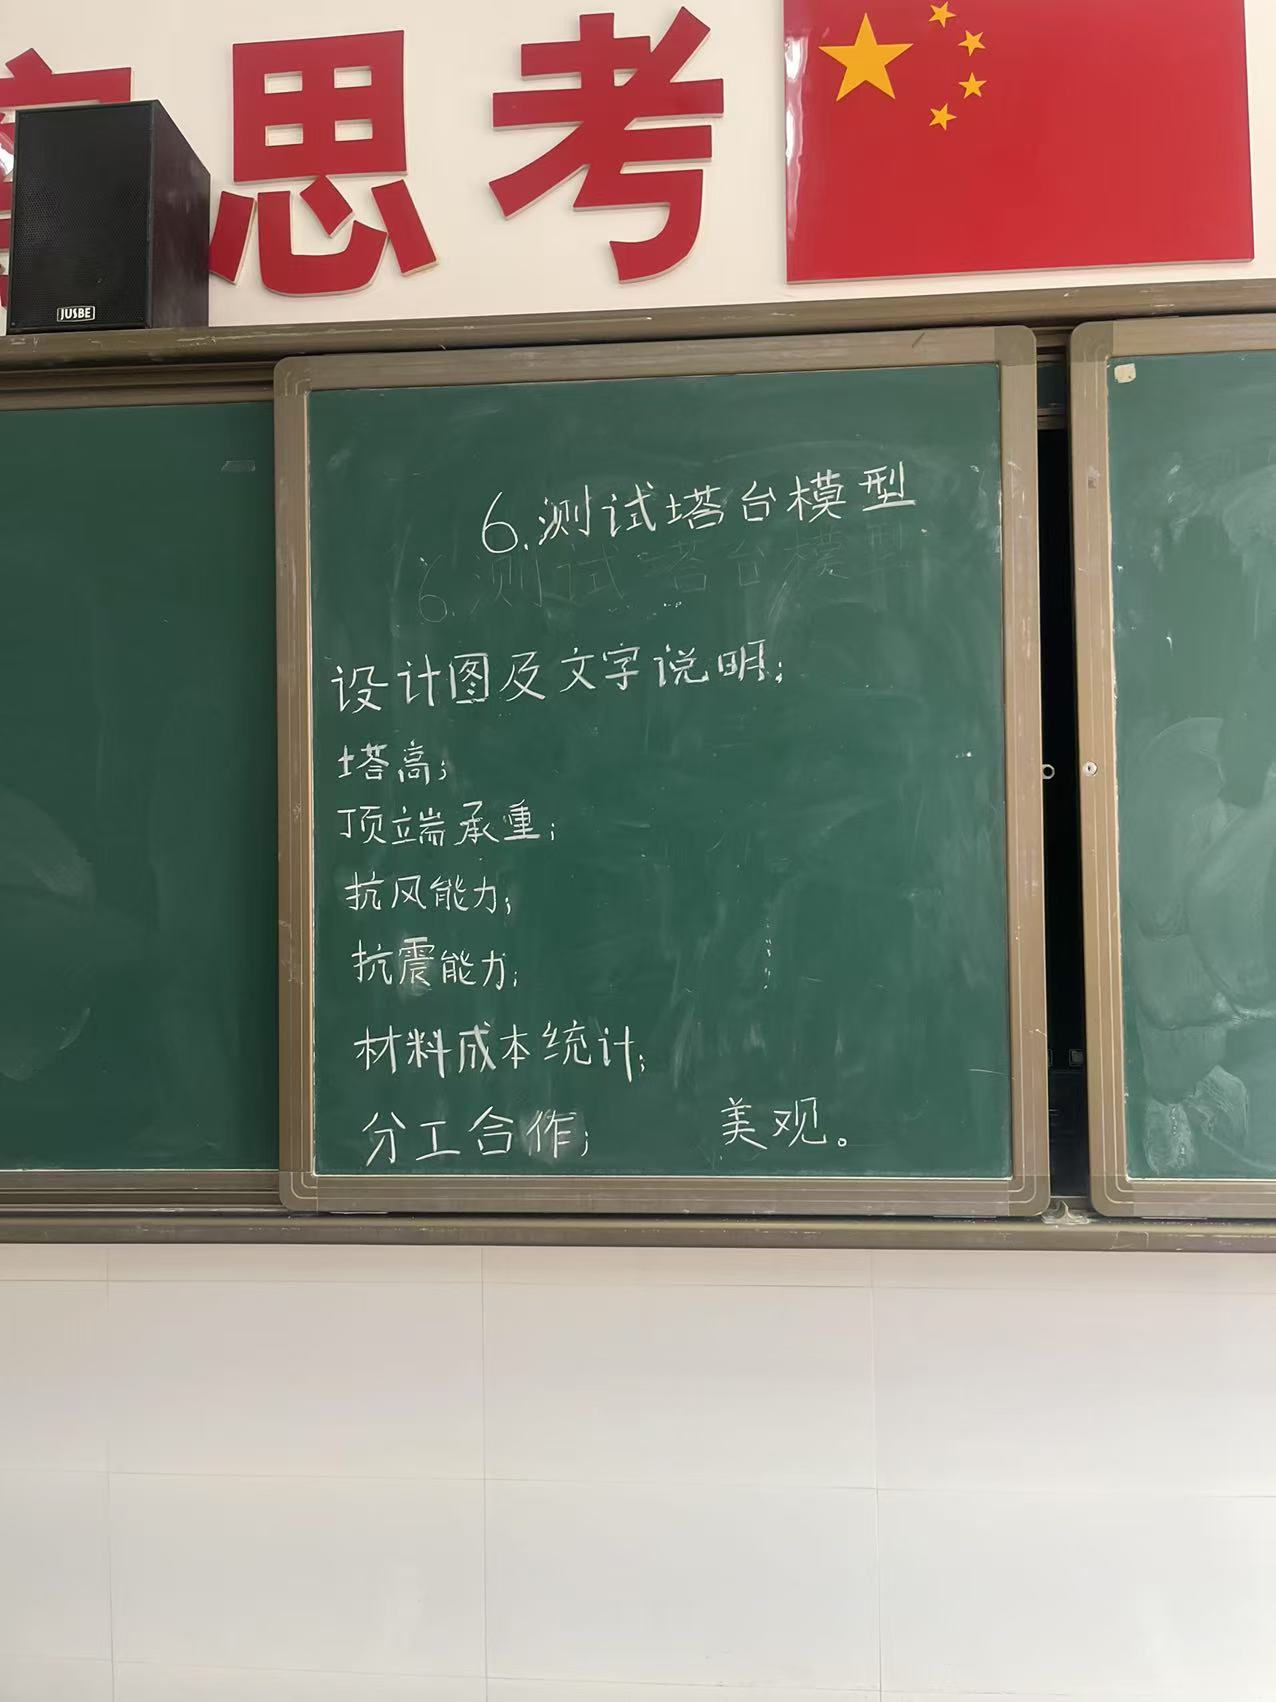 思考
JUSBE
6.测试塔台模型
6.测试塔台模型
设计图及文字说明;
塔高;
顶端承重;
抗风能力;
抗震能力;
材料成本统计;
分工合作; 美观。